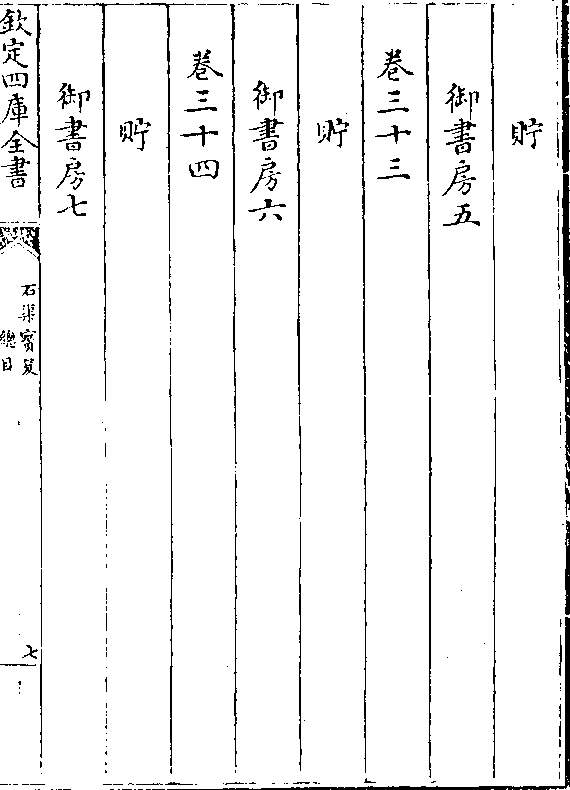 貯
御書房五
卷三十三
貯
御書房六
卷三十四
貯
御書房七
欽定四庫全書
石渠寳笈
總目
七